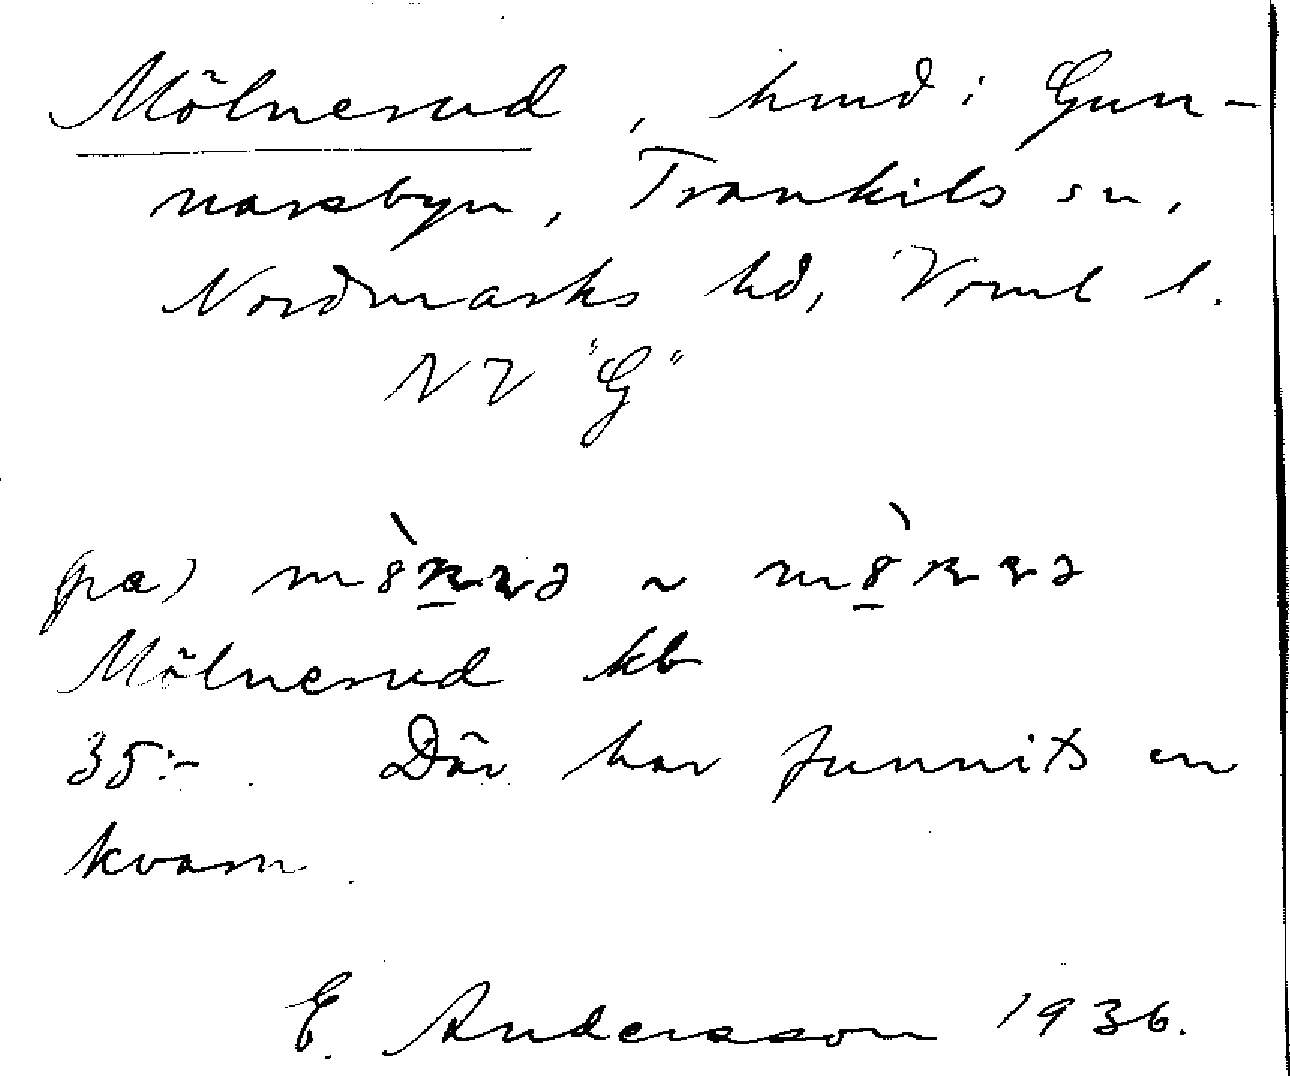 Mölnerud, hmd i Gun-
narsbyn, Trankils sn,
Nordmarks hd, Vrml l.
NV "G"
(på)
Mölnerud kb
35:- Där har funnits en
kvarn.
E. Andersson 1936.